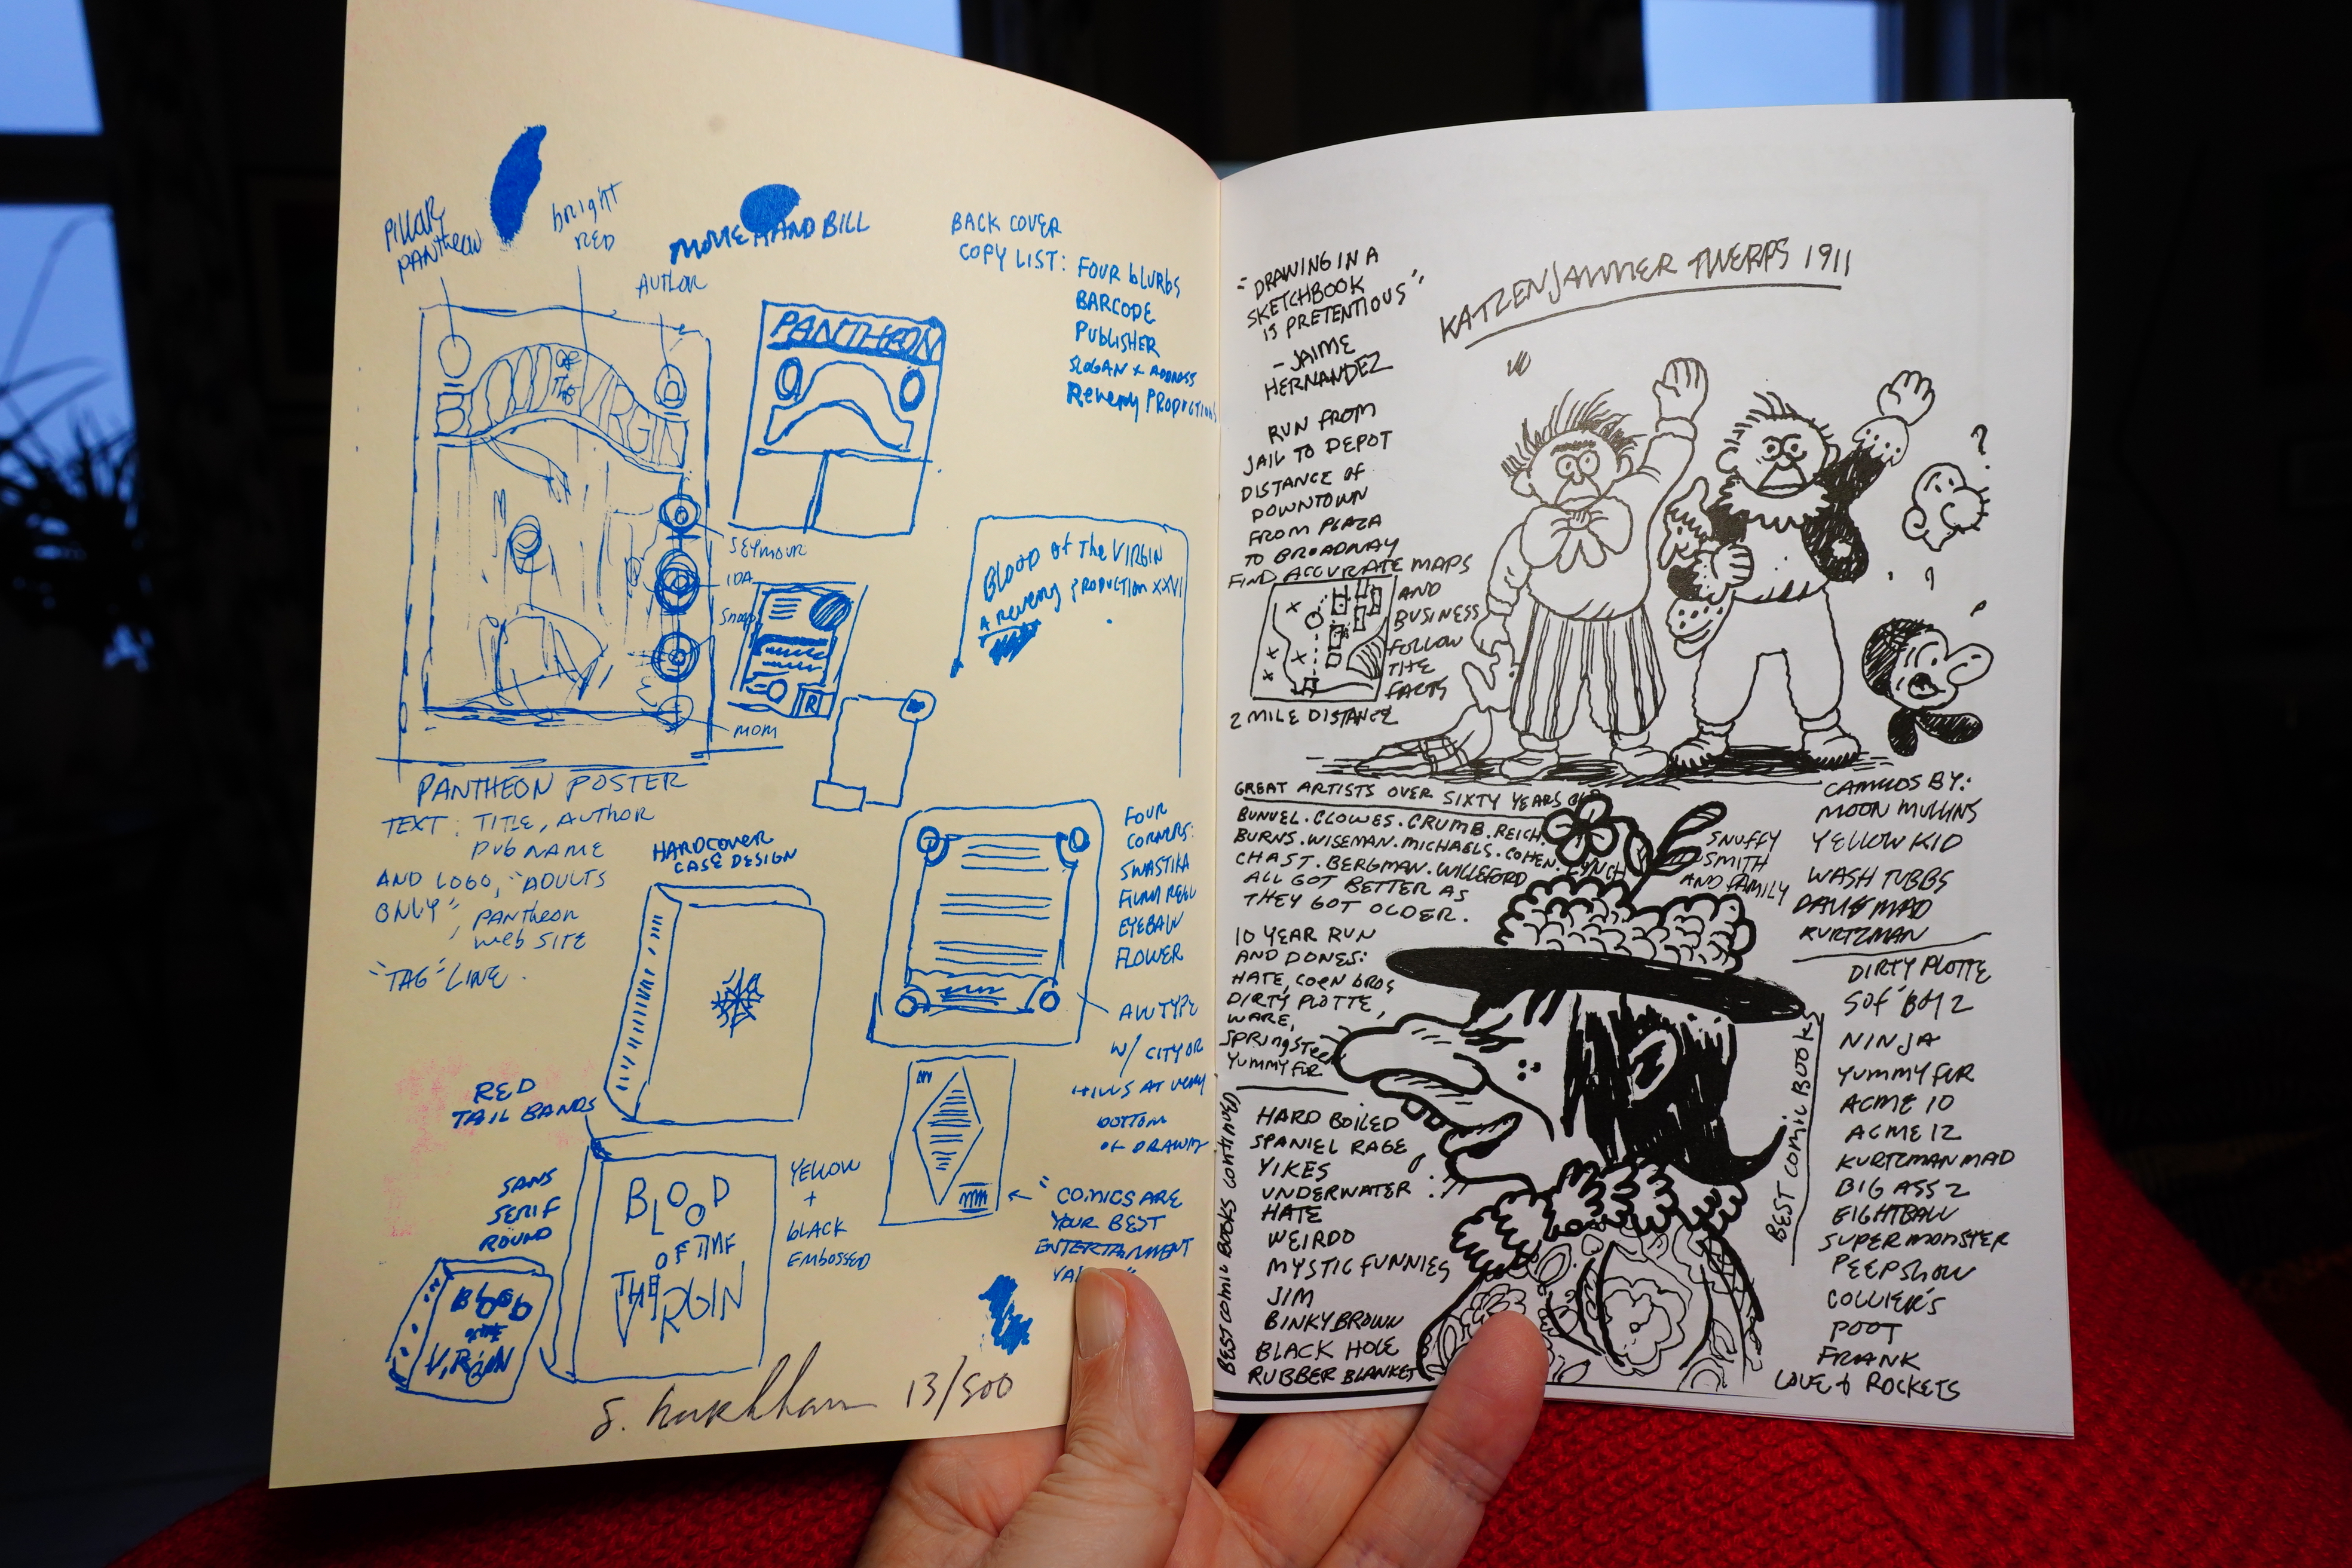 PILLAR
PANTHEON
bright
RED
AUTHOR
MOVIE HAND BILL
BACK COVER
COPY LIST: FOUR blURBS
BARCODE
PUBLISHER
SLOGAN + ADDRESS
REVERRY PRODUCTIONS
BLOOD OF THE VIRGIN
PANTHEON
SEYMOUR
IDA
MOM
R
BLOOD of The VIRGIN
A REVERRY PRODUCTION XXVI
PANTHEON POSTER
TEXT: TITLE, AUTHOR
PUB NAME
AND LOGO, "ADULTS
ONLY", PANTHEON
WEB SITE
"TAG" LINE.
HARDCOVER
CASE DESIGN
FOUR
CORNERS:
SWASTIKA
FILM REEL
EYEBALL
FLOWER
ALL TYPE
W/ CITY OR
HILLS AT VERY
BOTTOM
OF DRAWING
RED
TAIL BANDS
SANS
SERIF
ROUND
BLOOD
OF THE
VIRGIN
YELLOW
+
BLACK
EMBOSSED
BLOOD
VIRGIN
"COMICS ARE
YOUR BEST
ENTERTAINMENT
S. Harkham 13/500
"DRAWING IN A
SKETCHBOOK
IS PRETENTIOUS",
- JAIME
HERNANDEZ
KATZENJAMMER TWERPS 1911
RUN FROM
JAIL TO DEPOT
DISTANCE OF
DOWNTOWN
FROM PLAZA
TO BROADWAY
FIND ACCURATE MAPS
AND
BUSINESS
FOLLOW
THE
FACTS
2 MILE DISTANCE
GREAT ARTISTS OVER SIXTY YEARS OLD
BUNUEL. CLOWES. CRUMB. REICH.
BURNS. WISEMAN. MICHAELS. COHEN. LYNCH
CHAST. BERGMAN. WILLEFORD
ALL GOT BETTER AS
THEY GOT OLDER.
SNUFFY
SMITH
AND FAMILY
CAMEOS BY:
MOON MULLINS
YELLOW KID
WASH TUBBS
MAD
KURTZMAN
10 YEAR RUN
AND DONES:
HATE, CORN BROS
DIRTY PLOTTE,
WARE,
SPRINGSTEEN
YUMMY FUR
BEST COMIC BOOKS
DIRTY PLOTTE
SOF' BOY 2
NINJA
YUMMY FUR
ACME 10
ACME 12
KURTZMAN MAD
BIG ASS 2
EIGHTBALL
SUPERMONSTER
PEEPSHOW
COLLIER'S
POOT
FRANK
LOVE & ROCKETS
BEST COMIC BOOKS CONTINUED
HARD BOILED
SPANIEL RAGE
YIKES
UNDERWATER
HATE
WEIRDO
MYSTIC FUNNIES
JIM
BINKY BROWN
BLACK HOLE
RUBBER BLANKET